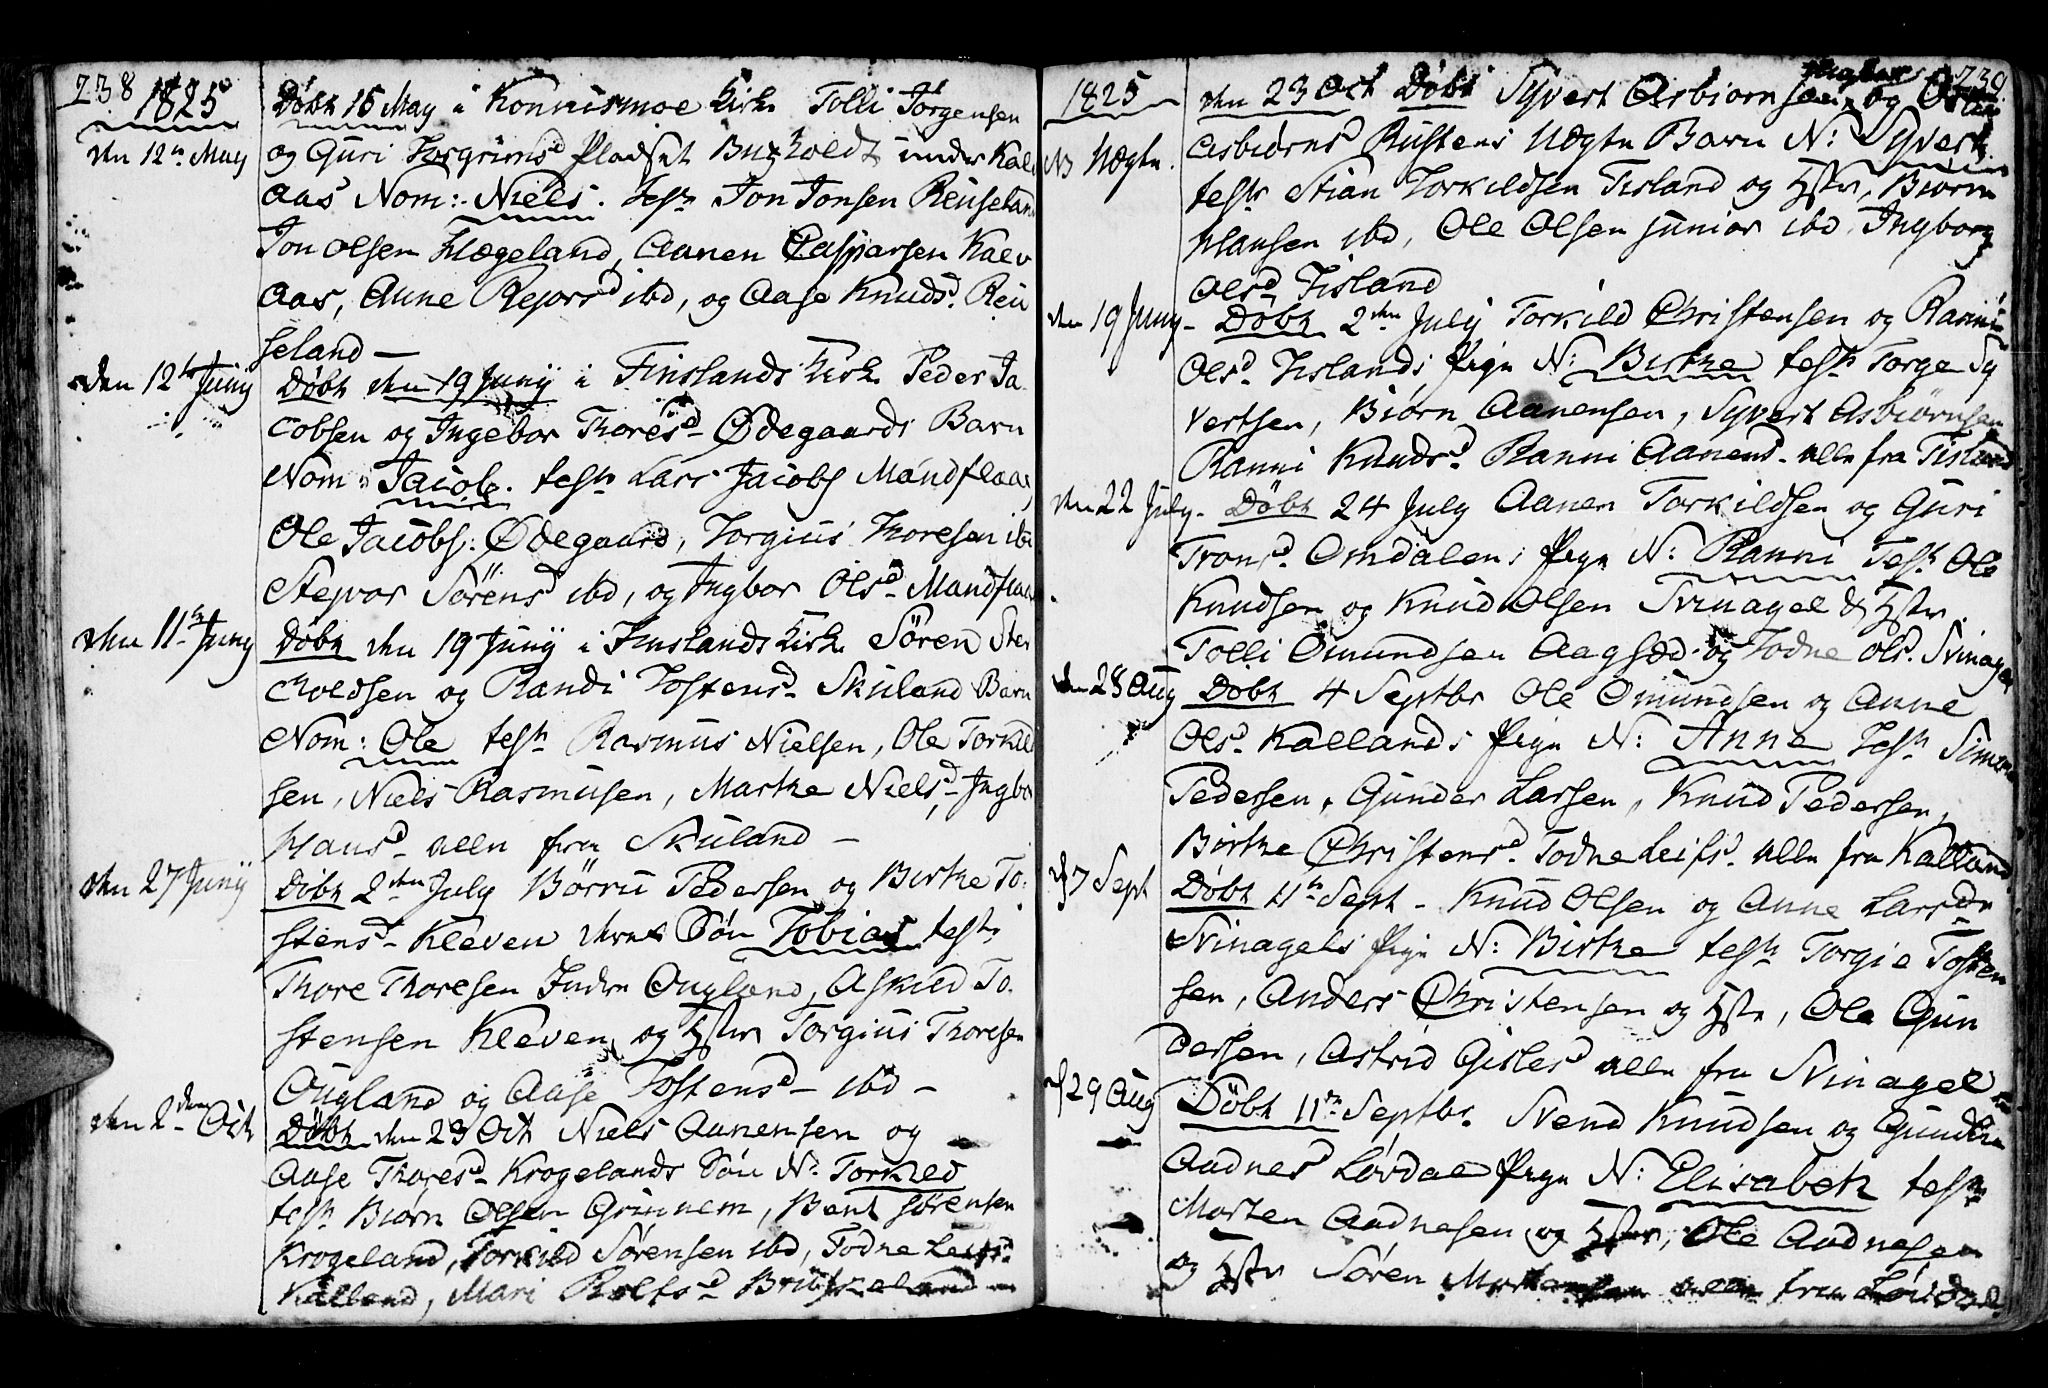 238
1825
den 12te May
Døbt 15 May i Konnismoe Kirke Tolli Jørgensen
og Guri Torgrimsd Pladset Buxholdt under Kal
aas Nom: Niels. Test Jon Jonsen Reuseland
Jon Olsen Hægeland, Aanen Casparsen Kalv
aas, Anne Rejersd ibd, og Aase Knudsd. Reu
seland —
den 12te Juny
Døbt den 19 Juny i Finslands Kirke Peder Ja
cobsen og Ingebor Thoresd Ødegaards Barn
Nom: Jacob. test Lars Jacobs Mandflaae,
Ole Jacobs: Ødegaard, Torgius Thoresen ibd
Stejvor Sörensd ibd, og Ingbor Olsd Mandflaae
den 11te Juny
Döbt den 19 Juny i Finslands Kirke Sören Ster
choldsen og Randi Tostensd Skuland Barn
Nom: Ole test Rasmus Nielsen, Ole Torkild
sen, Niels Rasmusen, Marthe Nielsd, Ingbor
Hansd alle fra Skuland —
den 27 Juny
Döbt 2den July Börru Pedersen og Birthe To:
stensd Kleven deres Sön Tobias test
Thore Thoresen Indre Ougland, Askild To.
stensen Kleven, og Hstr Torgius Thoresen
Ougland og Aase Tostensd ibd —
den 2den Oct
Döbt den 23 Oct Niels Aanensen og
Aase Thoresd Krogelands Sön N: Torkild
test Biørn Olsen Grinnem, Bent Sörensen
Krogeland, Torkild Sörensen ibd, Todne Leifsd
Kalland, Mari Rolfsd Bruskeland
239
1825
NB Uægte.
den 23 Oct Döbt Syvert Asbiornsen og
Asbiørns Rustens Uægte Barn N: Syvert
test Stian Torkildsen Tisland og Hstr, Biørn
Hansen ibd, Ole Olsen junior ibd, Ingborg
Olsd Tisland
den 19 Juny
Döbt 2den July Torkild Christensen og Ranni
Olsd. Tislands Pige N: Birthe test Torge Sy
vertsen, Biørn Aanensen, Syvert Asbiørnsen
Ranni Knudsd. Ranni Aanensd. alle fra Tisland
den 22 July
Döbt 24 July Aanen Torkildsen og Guri
Tronsd. Omdalens Pige N: Ranni Test Ole
Knudsen og Knud Olsen Svinagel & Hstr.
Tolli Omundsen Aagsæd og Todne Ols. Svinagel
den 28 Aug
Döbt 4 Septbr Ole Omundsen og Anne
Olsd. Kallands Pige N: Anne Test Simon
Pedersen, Gunder Larsen, Knud Pedersen,
Birthe Christensd. Todne Leifsd. alle fra Kalland
d 7 Sept
Döbt 11te Sept — Knud Olsen og Anne Larsd
Svinagels Pige N: Birthe test Torgie Tosten
sen, Anders Christensen og Hstr, Ole Gun
dersen, Astrid Gislesd alle fra Svinagel
d 29 Aug
Döbt 11te Septbr. Svend Knudsen og Gunild
Audnesd Lövdal Pige N: Elisabeth test
Morten Audnesen og Hstr, Ole Audnesen
og Hstr Sören Mortensen alle fra Lövdal